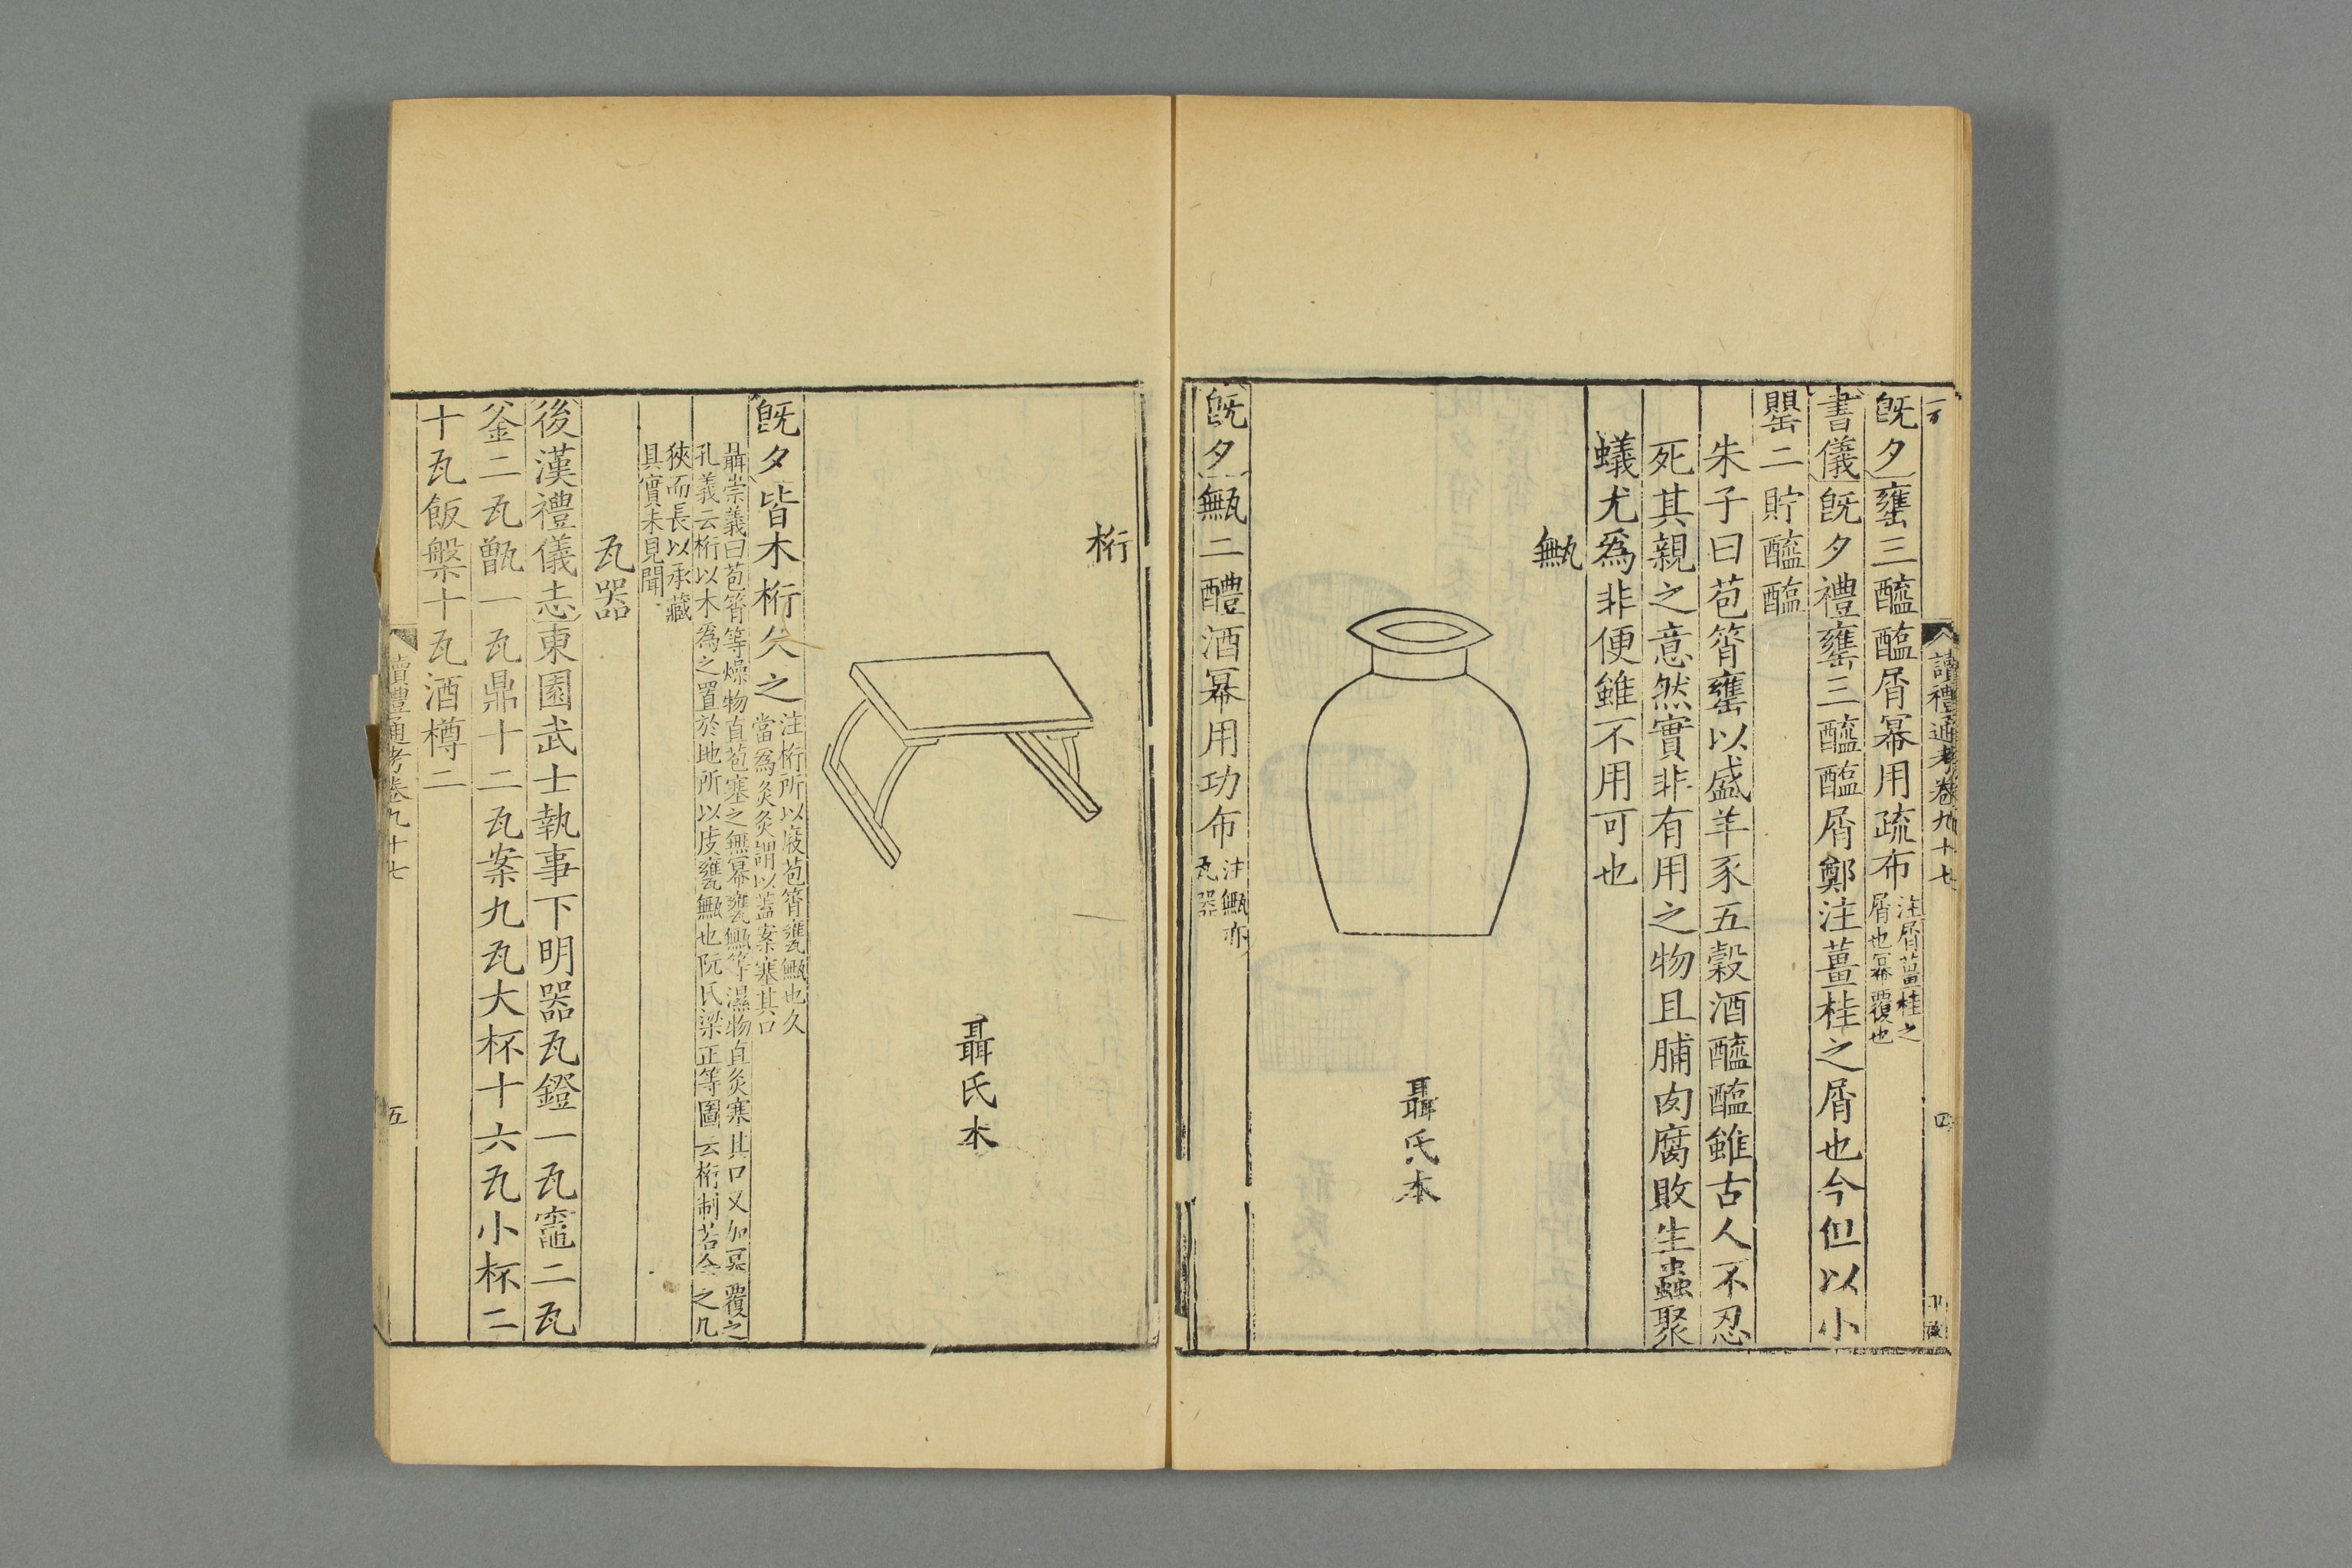 讀禮通考卷九十七
四
旣夕甕三醯醢屑幂用疏布
注屑薑桂之
屑也幂覆也
書儀旣夕禮甕三醯醢屑鄭注薑桂之屑也今但以小
罌二貯醯醢
朱子曰苞筲甕以盛羊豕五穀酒醯醢雖古人不忍
死其親之意然實非有用之物且脯肉腐敗生蟲聚
蟻尤爲非便雖不用可也
甒
聶氏本
旣夕甒二醴酒幂用功布
注甒亦
瓦器
桁
聶氏本
旣夕皆木桁久之
注桁所以庪苞筲甕甒也久
當爲灸灸謂以蓋案塞其口
聶崇義曰苞筲等燥物直苞塞之無幂甕甒等濕物直灸塞其口又加幂覆之
孔義云桁以木爲之置於地所以庋甕甒也阮氏梁正等圖云桁制若今之几
狹而長以承藏
具實未見聞
瓦器
後漢禮儀志東園武士執事下明器瓦鐙一瓦竈二瓦
釜二瓦甑一瓦鼎十二瓦案九瓦大杯十六瓦小杯二
十瓦飯槃十瓦酒樽二
讀禮通考卷九十七
五